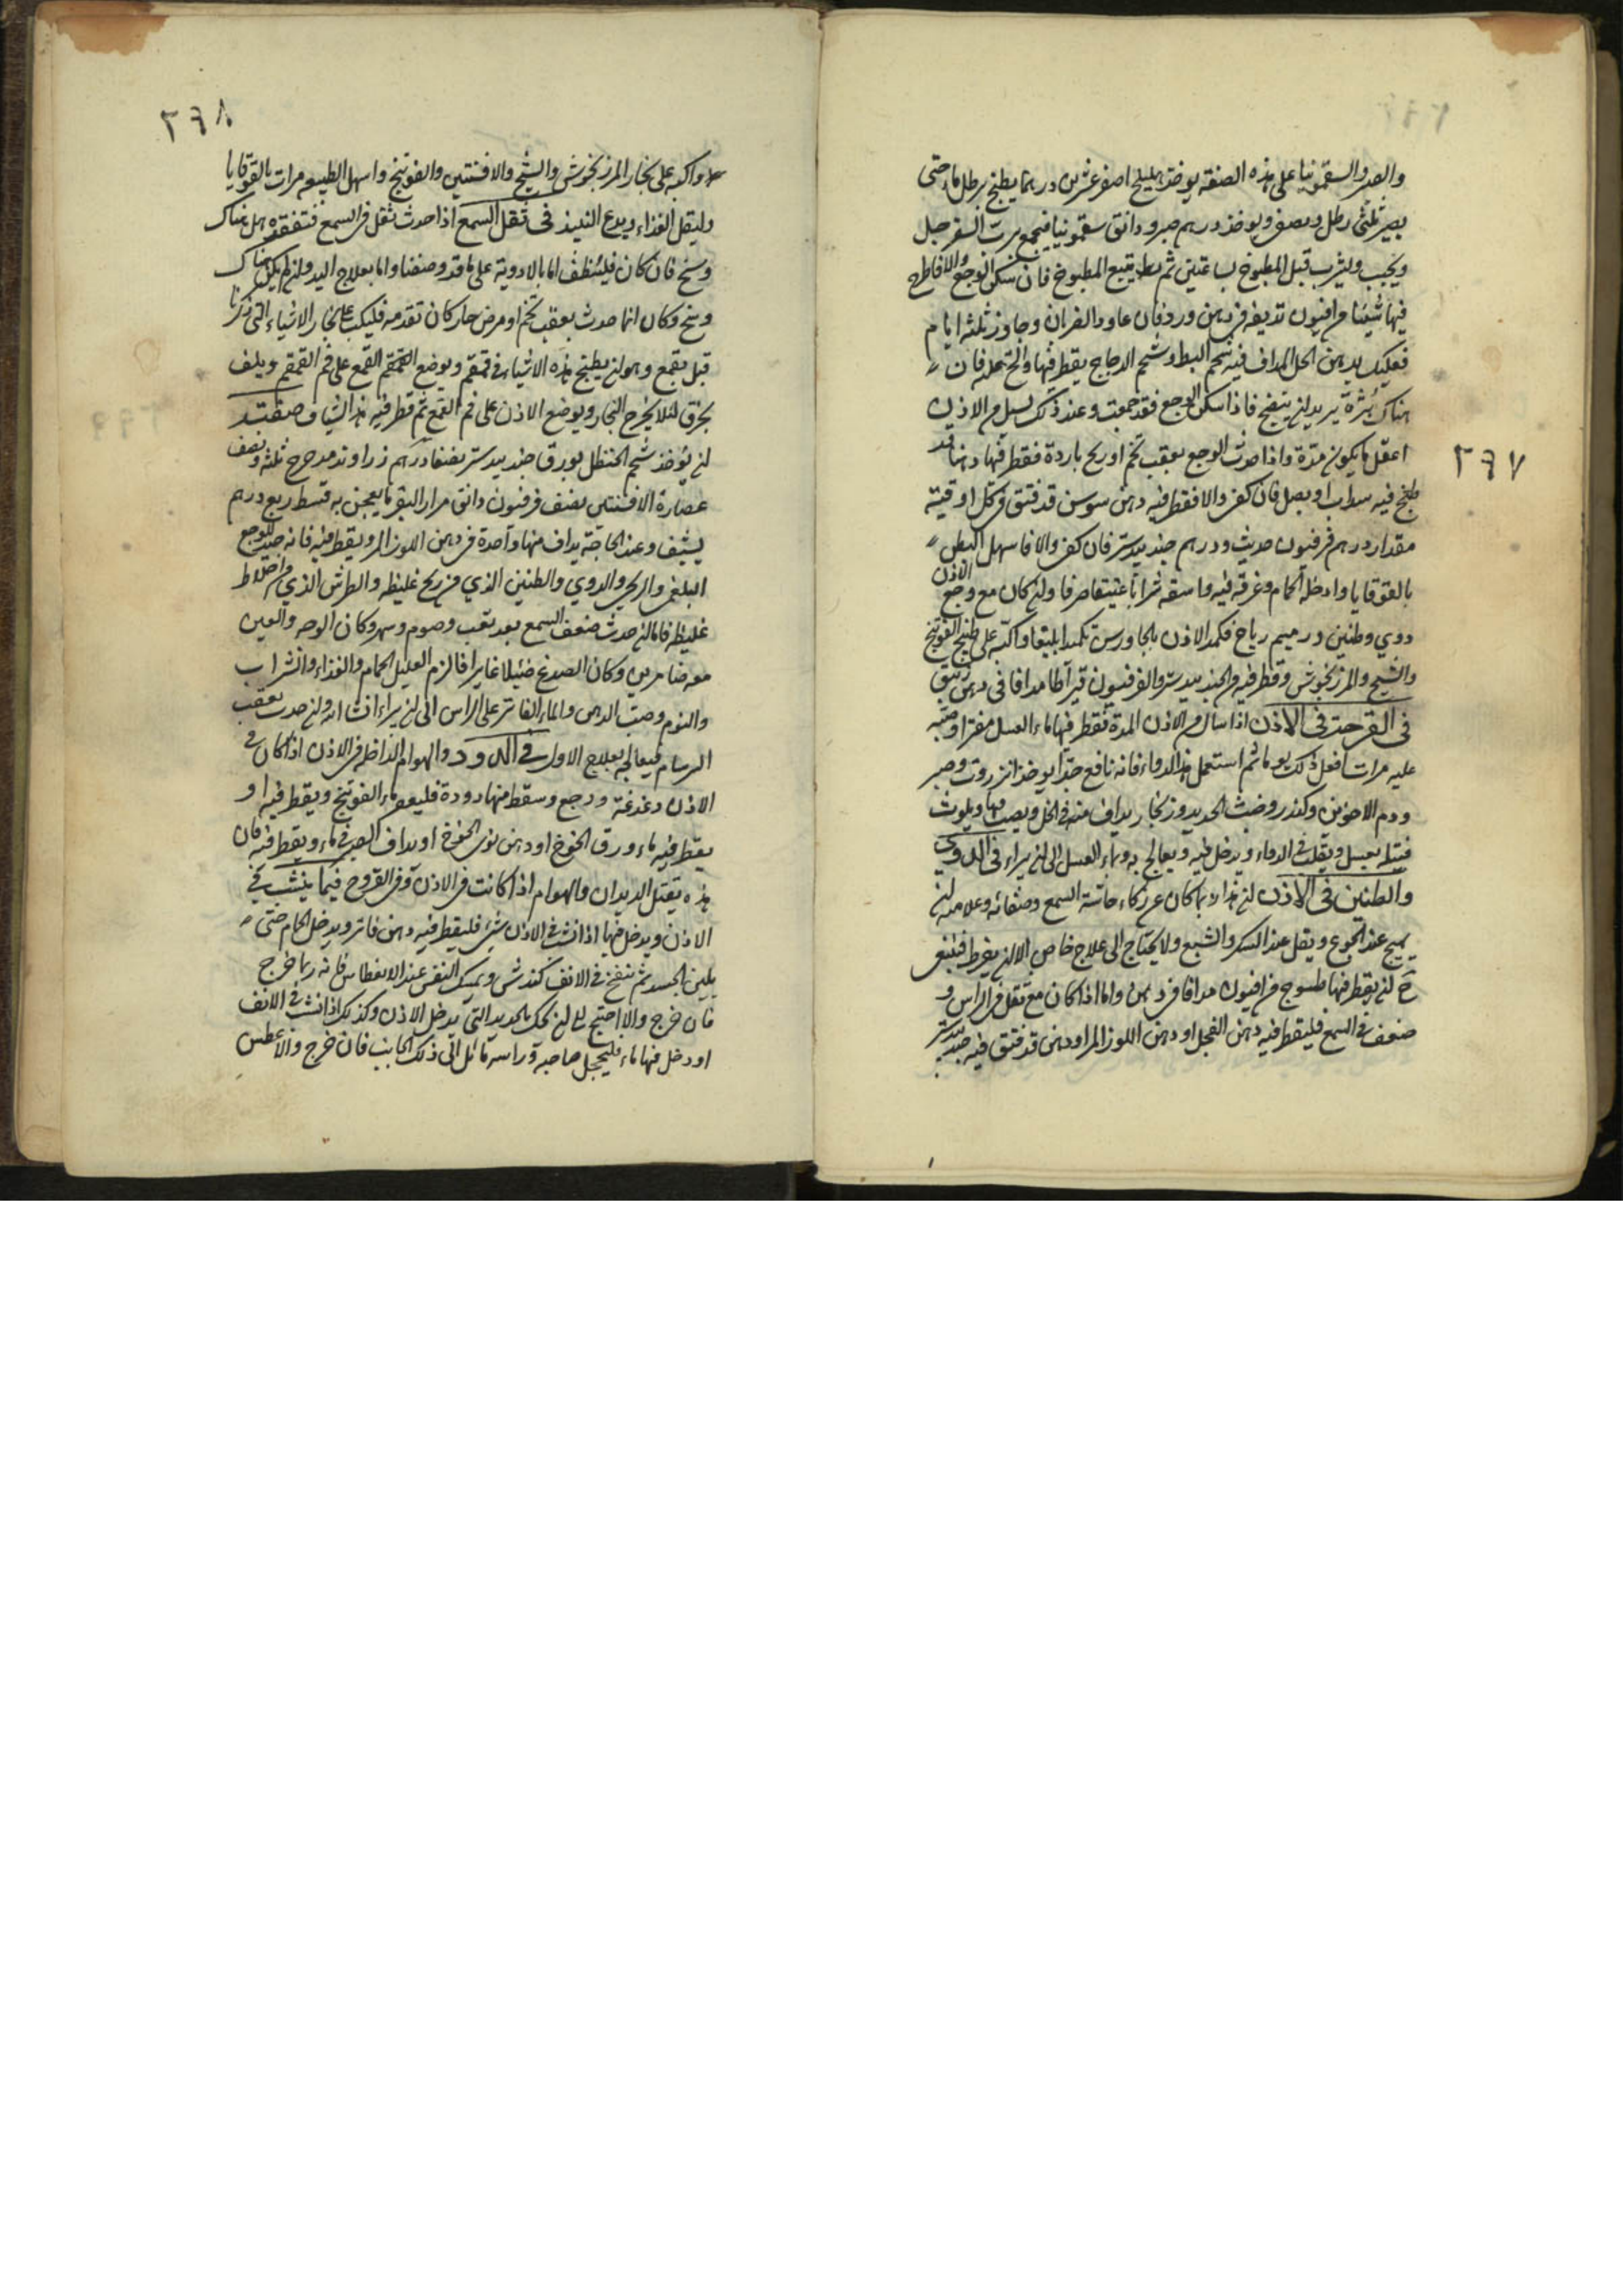 والصبر والسقمونيا على هذه الصفة يوخذ هليلج اصفر عشرين درهما يطبخ برطل ماء حتى
يصير ثلثى رطل ويصفى ويوخذ درهم صبر ودانق سقمونيا فيجمع برب السفرجل
ويحبب ويشرب قبل المطبوخ بساعتين ثم يتبع المطبوخ فان سكن الوجع والا فاطرح
فيها شيئا من افيون تديفه فى دهن ورد فان عاود الضربان وجاوز ثلثة ايام
فعليك بدهن الحل المداف فيه شحم البط وشحم الدجاج يقطر فيها والح عليه فان
هناك بثرة يريد ان ينفتح فاذا سكن الوجع فقد جمعت وعند ذلك يسيل من الاذن
اعقل ما يكون مدة واذا حدث الوجع بعقب تخم او ريح باردة فقطر فيها دهنا قد
طبخ فيه سداب او بصل فان كفى والا فقطر فيه دهن سوسن قد فتق فى كل اوقية
مقدار درهم فرفيون حديث ودرهم جندبيدستر فان كفى والا فاسهل البطن
بالقوقايا وادخله الحمام وعرقه فيه واسقه شرابا عتيقا صرفا وان كان مع وجع الاذن
دوي وطنين رياح فكمد الاذن بالجاورس تكميدا بليغا واكبه على طبيخ الفوتنج
والشيح والمرزنجوش وقطر فيه الجندبيدستر والفرفيون قيراطا مدافا فى دهن زنبق
فى القرحة فى الاذن اذا سال من الاذن المدة فقطر فيها ماء العسل مفترا وصبه
عليه مرات افعل ذلك يوما ثم استعمل هذا الدواء فانه نافع جدا يوخذ انزروت وصبر
ودم الاخوين وكندر وخبث الحديد وزنجار يداف منه فى الخل ويصب فيها ويلوث
فتيله بعسل ويقلب فى الدواء ويدخل فيه ويعالج به وبماء العسل الى ان يبراء فى الدوى
والطنين فى الاذن ان هذا ربما كان عن ذكاء حاسة السمع وصفائه وعلامته ان
يهيج عند الجوع ويقل عند السكر والشبع ولا يحتاج الى علاج خاص الا ان يفرط فينبغى
ح ان يقطر فيها طسوج من افيون مدافا فى دهن واما اذا كان مع ثقل فى الراس و
ضعف فى السمع فليقطر فيه دهن الفجل او دهن اللوز المر او دهن قد فتق فيه جندبيدستر
٢٦٧
٢٦٨
واكبه على بخار المرزنجوش والشيح والافسنتين والفوتنج واسهل الطبيعه مرات بالقوقايا
وليقل الغذاء ويدع النبيذ فى ثقل السمع اذا حدث ثقل فى السمع فتفقده هل هناك
وسخ فان كان فلينظف اما بالادوية على ما قد وصفنا واما بعلاج اليد وان لم يكن هناك
وسخ وكان انما حدث بعقب تخم او مرض حار كان تقدمه فليكب على بخار الاشياء التى ذكرنا
قبل بقمع وهو ان يطبخ هذه الاشياء فى قمقم ويوضع القمع على فم القمقم ويلف
بخرق لئلا يخرج البخار ويوضع الاذن على فم القمع ثم قطر فيه هذا الشياف صفته
ان يوخذ شحم الحنظل بورق جندبيدستر نصفا درهم زراوند مدحرج ثلثة ونصف
عصارة الافسنتين نصف فرفيون دانق مرار البقر ما يعجن به قسط ربع درهم
يشيف وعند الحاجة يداف منها واحدة فى دهن اللوز المر ويقطر فيه فانه جيد للوجع
البلغمى والريحى والدوي والطنين الذي من ريح غليظه والطرش الذي من اخلاط
غليظه فاما ان حدث ضعف السمع بعد تعب وصوم وسهر وكان الوجه والعين
معه ضامرين وكان الصدغ ضئيلا غايرا فالزم العليل الحمام والغذاء والشراب
والنوم وصب الدهن والماء الفاتر على الراس الى ان يبراء ان شاء الله وان حدث بعقب
البرسام فيعالج بعلاج الاول فى الدود والهوام الداخله فى الاذن اذا كان فى
الاذن دغدغة ووجع وسقط منها دودة فليعصر ماء الفوتنج ويقطر فيه او
يقطر فيه ماء ورق الخوخ او دهن نوى الخوخ او يداف الصبر فى ماء ويقطر فيه فان
هذه يقتل الديدان والهوام اذا كانت فى الاذن وفى القروح فيما ينشب فى
الاذن ويدخل فيها اذا نشب فى الاذن شئ فليقطر فيه دهن فاتر ويدخل الحمام حتى
يلين الجسد ثم ينفخ فى الانف كندش ويمسك النفس عند العطاس فانه ربما خرج
فان خرج والا احتيج الى ان يحك بالحديد التى يدخل الاذن وكذلك اذا نشب فى الانف
او دخل فيها ماء فليحجل صاحبه وراسه مائل الى ذلك الجانب فان خرج والا عطس